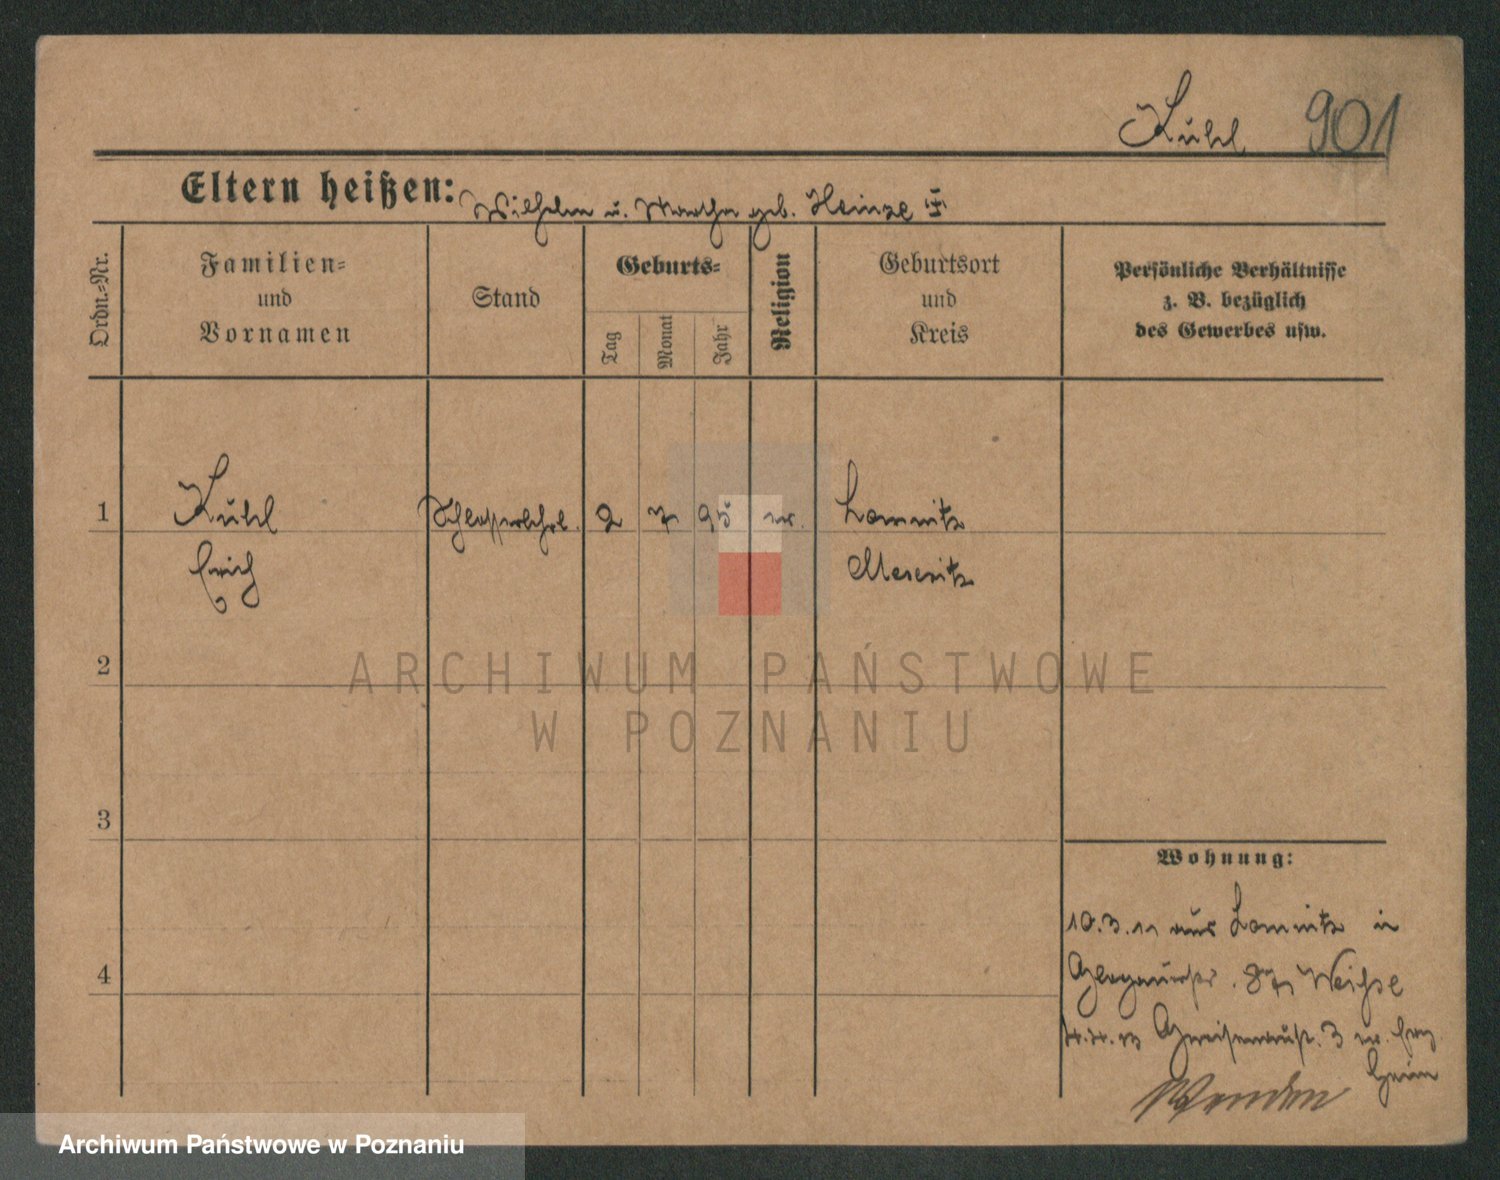 Kuhl 901
Eltern heißen: Wilhelm u. Martha geb. Heinze
Ordn.-Nr.
Familien-
und
Vornamen
Stand
Geburts-
Tag
Monat
Jahr
Religion
Geburtsort
und
Kreis
Persönliche Verhältnisse
z. B. bezüglich
des Gewerbes usw.
1 Kuhl Schlosserlehrl. 2 7 95 ev. Lomnitz
Erich Meseritz
2
ARCHIWUM PAŃSTWOWE
W POZNANIU
3
Wohnung:
10.3.11 aus Lomnitz in
Glogauerstr. 87
4
3 ev.
heim
Wenden
Archiwum Państwowe w Poznaniu